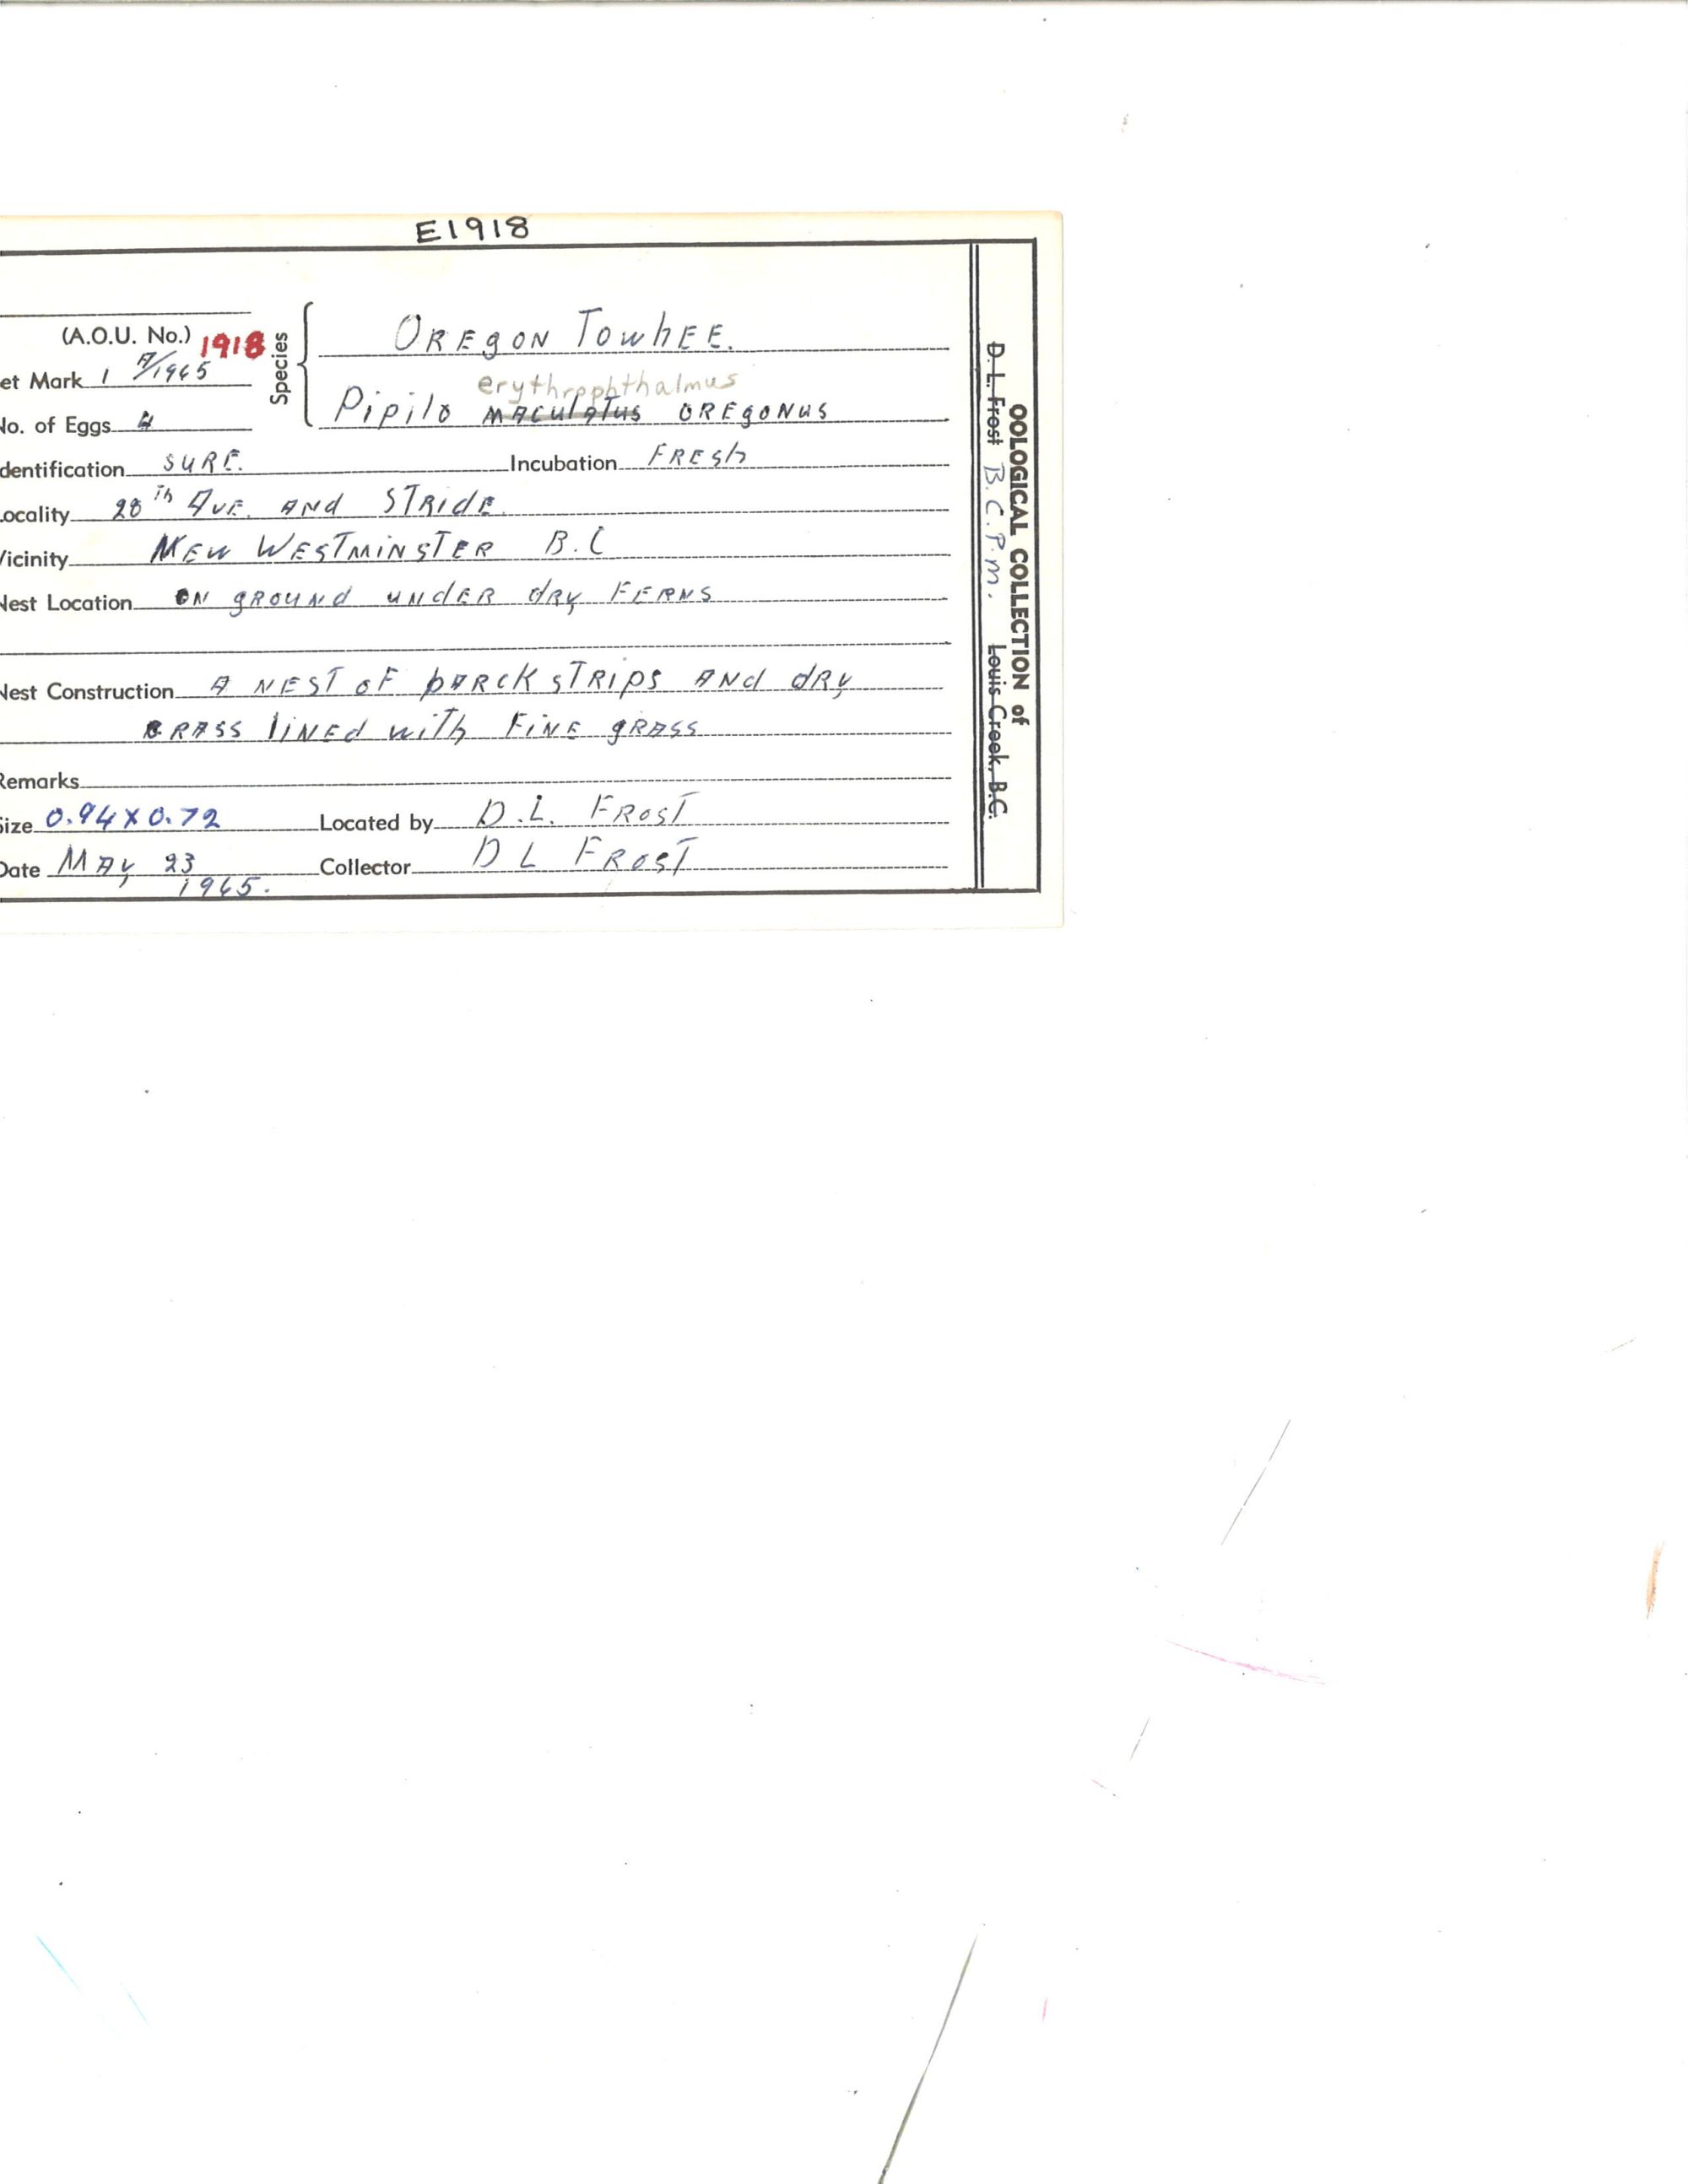 E1918
(A.O.U. No.) 1918
et Mark 1 4/1965
No. of Eggs 4
Species
OREGON TOWHEE.
erythrophthalmus
Pipilo maculatus OREGONUS
dentification SURE. Incubation FRESH
Locality 28th AVE. AND STRIDE
Vicinity NEW WESTMINSTER B.C
Nest Location ON GROUND UNDER DRY FERNS
Nest Construction A NEST OF BARCK STRIPS AND DRY
GRASS LINED WITH FINE GRASS
Remarks
Size 0.94 X 0.72 Located by D.L. FROST
Date MAY 23 1965. Collector D L FROST
OOLOGICAL COLLECTION of
D. L. Frost B.C.P.M. Louis Creek, B.C.